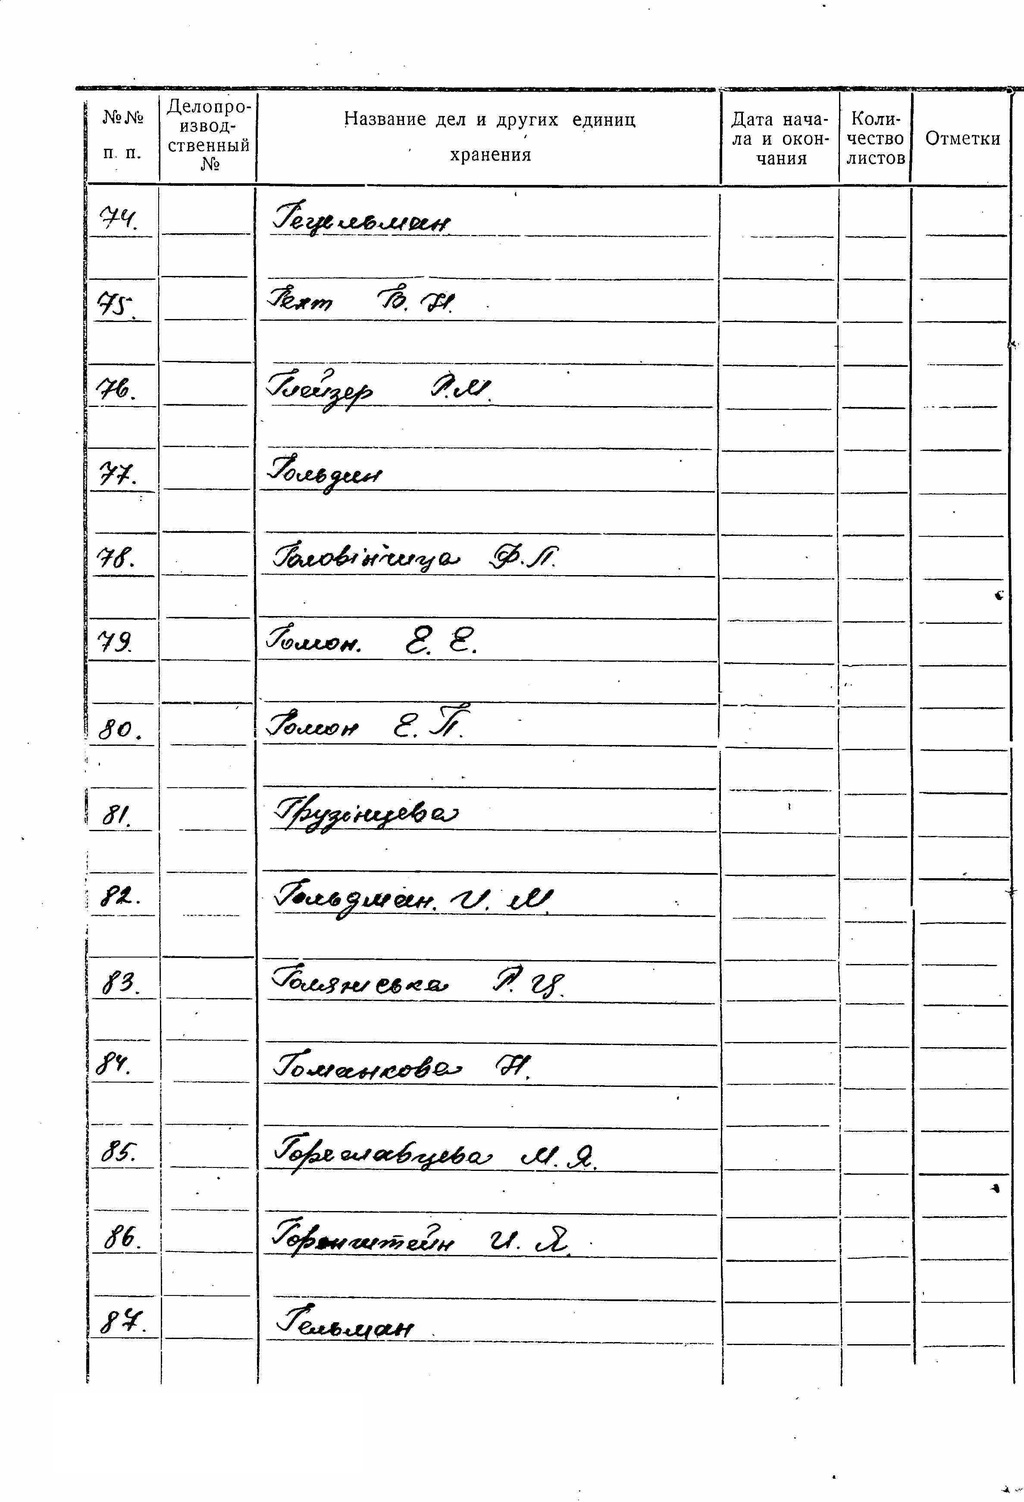 №№ п. п. Делопроизводственный № Название дел и других единиц хранения Дата начала и окончания Количество листов Отметки
74. Гецельман
75. Гехт Б. Н.
76. Глейзер Р. М.
77. Гольдин
78. Головінчица Ф. П.
79. Гомон. Е. Е.
80. Гомон Е. П.
81. Грузінцева
82. Гольдман. И. М.
83. Голянська Р. Ц.
84. Гоманкова Н.
85. Гореславцева М. Я.
86. Горенштейн И. Я.
87. Гельман